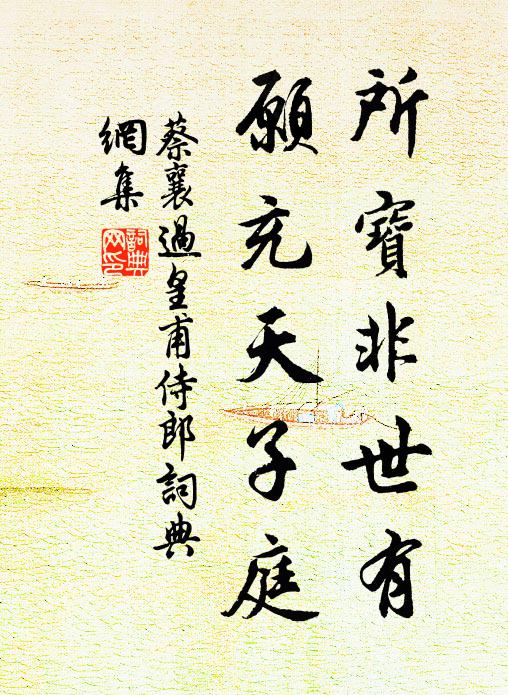 所寶非世有
願充天子庭
蔡襄過皇甫侍郎詞典
網集
詞典
網印